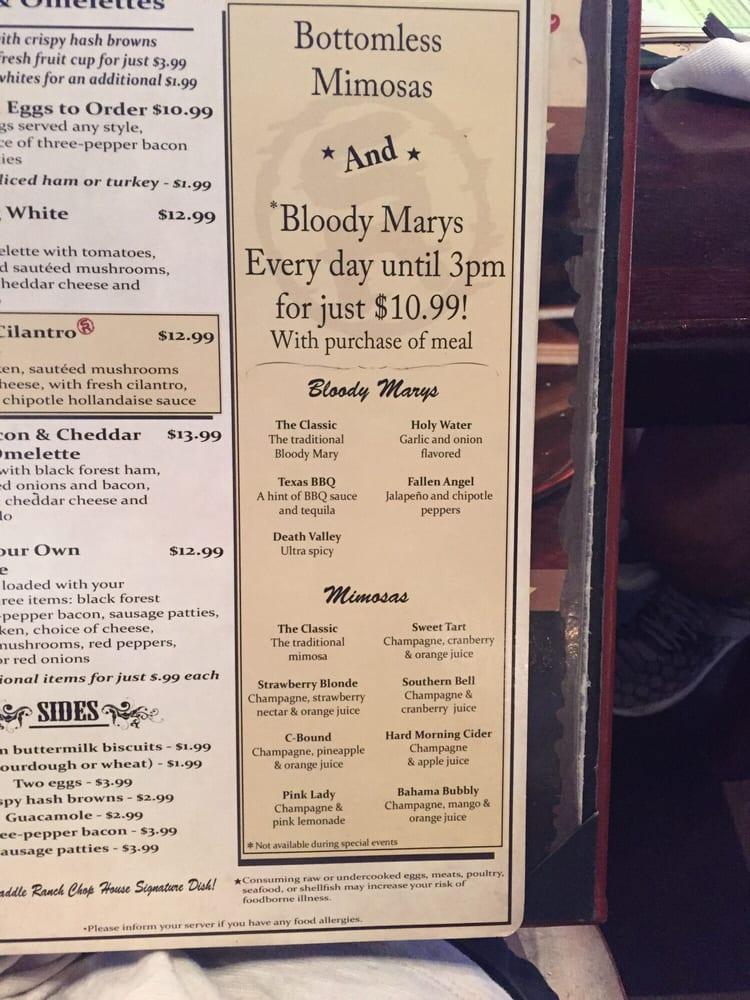 & Omelettes
with crispy hash browns
fresh fruit cup for just $3.99
whites for an additional $1.99
Eggs to Order $10.99
gs served any style,
ce of three-pepper bacon
ies
liced ham or turkey - $1.99
White $12.99
elette with tomatoes,
d sautéed mushrooms,
heddar cheese and
Cilantro SR $12.99
ken, sautéed mushrooms
heese, with fresh cilantro,
chipotle hollandaise sauce
con & Cheddar $13.99
Omelette
with black forest ham,
ed onions and bacon,
cheddar cheese and
lo
our Own $12.99
e
loaded with your
ree items: black forest
-pepper bacon, sausage patties,
ken, choice of cheese,
mushrooms, red peppers,
or red onions
ional items for just $.99 each
SIDES
n buttermilk biscuits - $1.99
ourdough or wheat) - $1.99
Two eggs - $3.99
spy hash browns - $2.99
Guacamole - $2.99
ee-pepper bacon - $3.99
ausage patties - $3.99
addle Ranch Chop House Signature Dish!
Bottomless
Mimosas
★ And ★
*Bloody Marys
Every day until 3pm
for just $10.99!
With purchase of meal
Bloody Marys
The Classic
The traditional
Bloody Mary
Holy Water
Garlic and onion
flavored
Texas BBQ
A hint of BBQ sauce
and tequila
Fallen Angel
Jalapeño and chipotle
peppers
Death Valley
Ultra spicy
Mimosas
The Classic
The traditional
mimosa
Sweet Tart
Champagne, cranberry
& orange juice
Strawberry Blonde
Champagne, strawberry
nectar & orange juice
Southern Bell
Champagne &
cranberry juice
C-Bound
Champagne, pineapple
& orange juice
Hard Morning Cider
Champagne
& apple juice
Pink Lady
Champagne &
pink lemonade
Bahama Bubbly
Champagne, mango &
orange juice
* Not available during special events
★Consuming raw or undercooked eggs, meats, poultry,
seafood, or shellfish may increase your risk of
foodborne illness.
•Please inform your server if you have any food allergies.